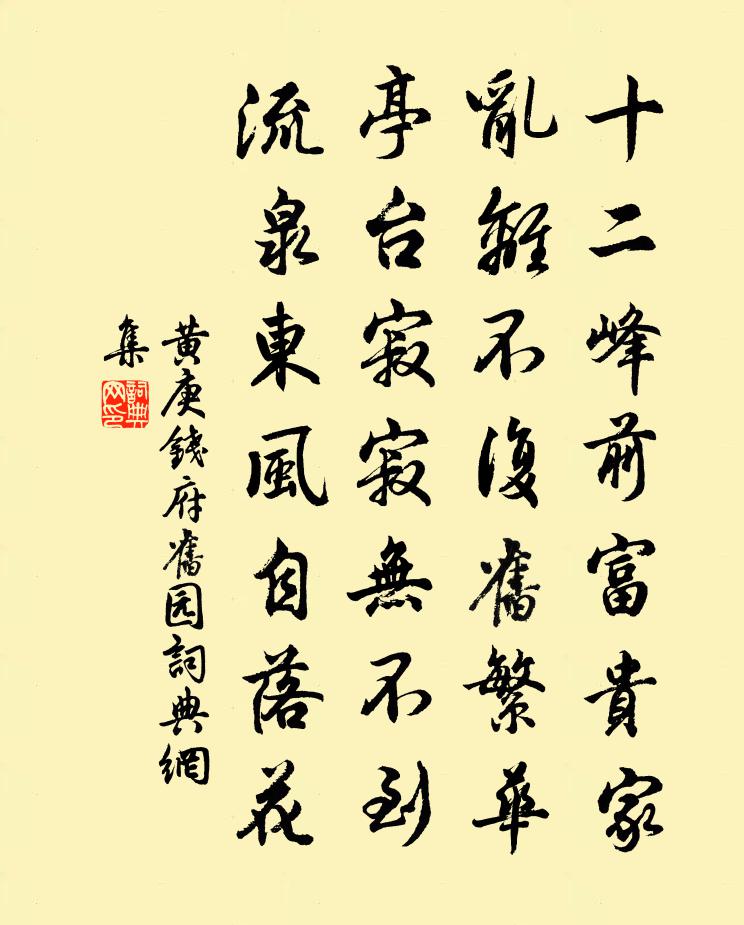 十二峰前富貴家
亂離不復舊繁華
亭台寂寂無不到
流泉東風自落花
黄庚錢府舊园詞典網
集
詞典网印